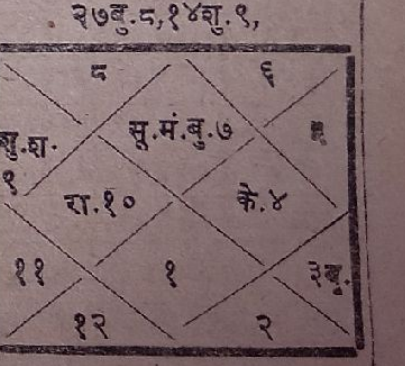 २७बु.८,१४शु.९,
८ ६
सू.मं.बु.७
शु.श. ५
९
रा.१० के.४
११ १ ३बृ.
१२ २